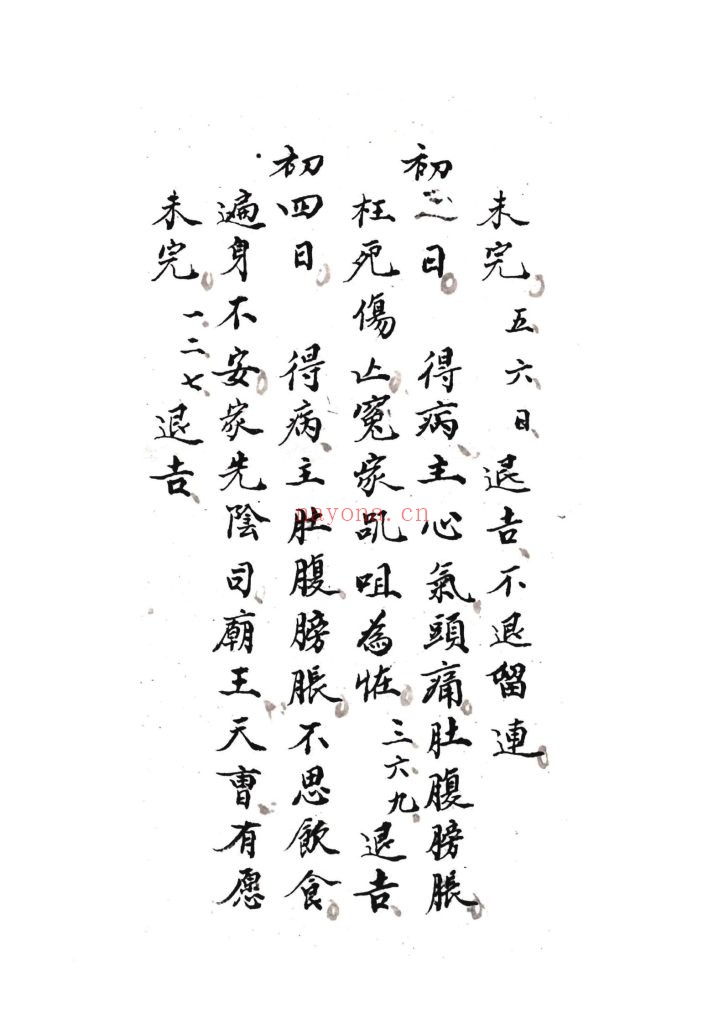 未完 五六日 退吉不退留連
初三日 得病主心氣頭痛肚腹膀脹
枉死傷亾冤家呪咀為怪 三六九 退吉
初四日 得病主肚腹膀脹不思飲食
遍身不安家先陰司廟王天曹有愿
未完 一二七 退吉
nayona.cn